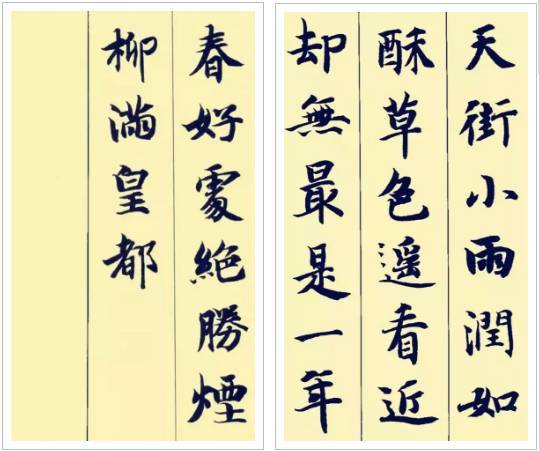 天街小雨潤如
酥草色遥看近
却無最是一年
春好處絕勝煙
柳滿皇都